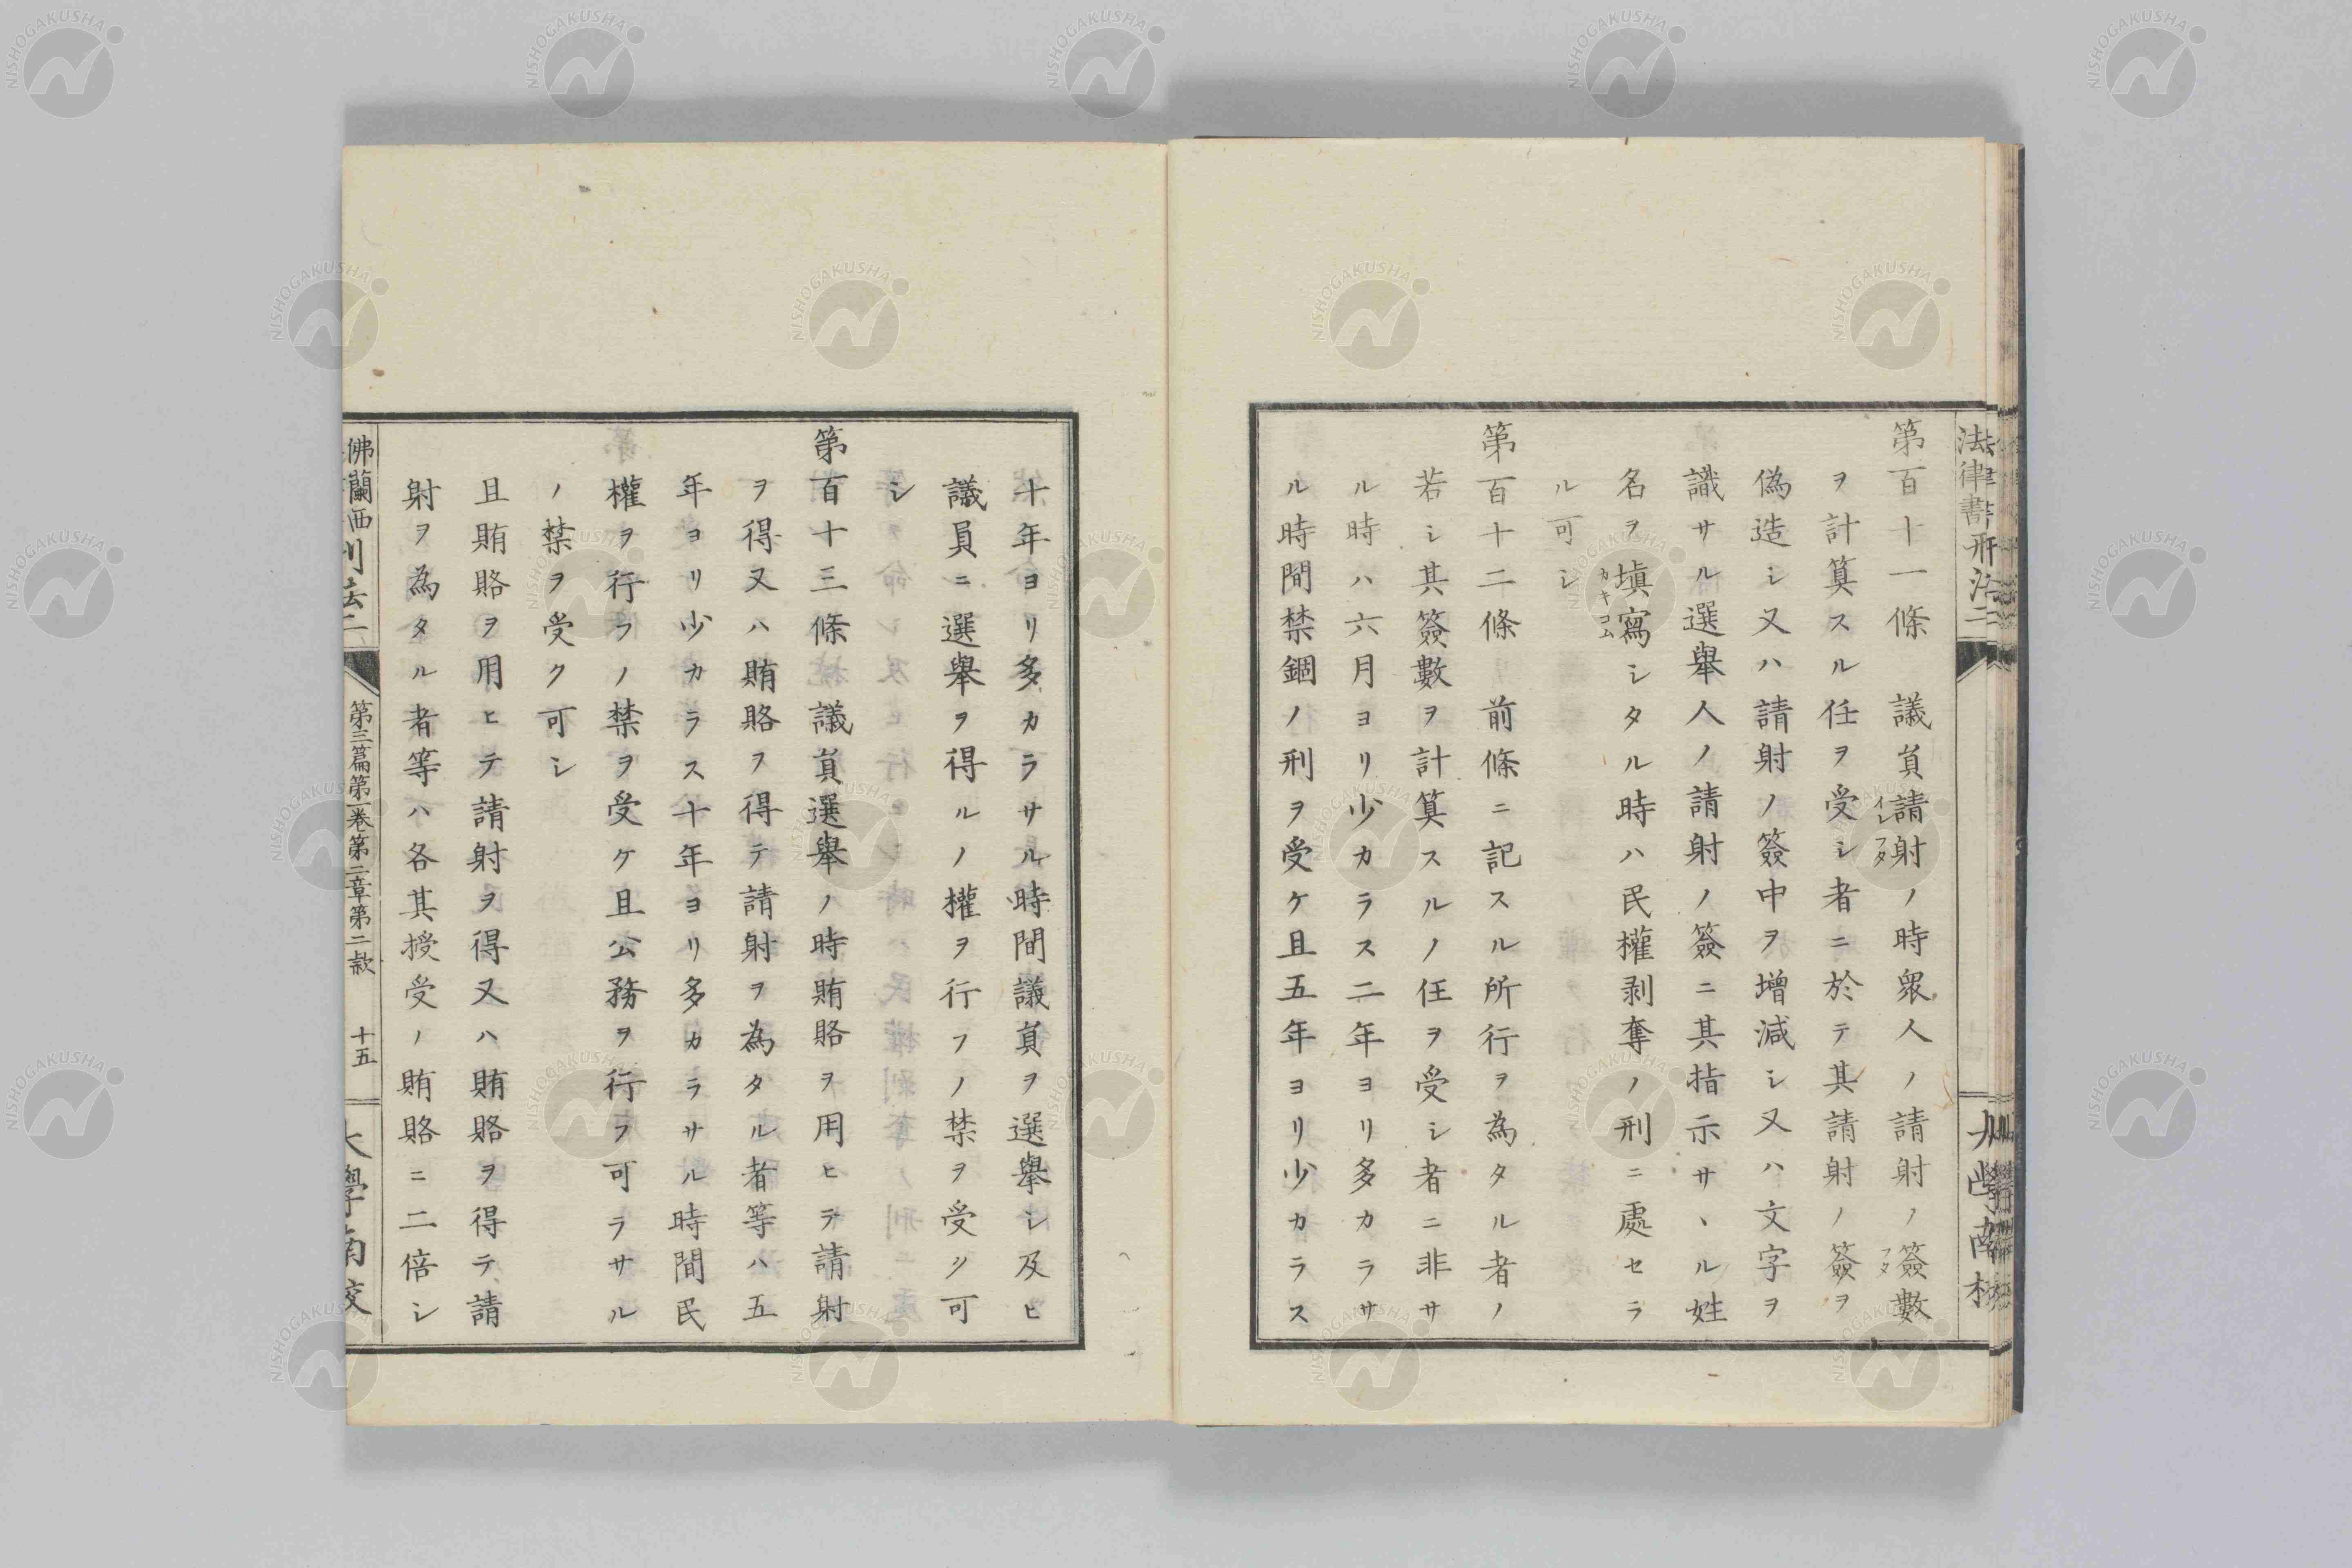 法律書刑法二
第百十一條　議員請射ノ時衆人ノ請射ノ簽數
イレフダ
フダ
ヲ計算スル任ヲ受シ者ニ於テ其請射ノ簽ヲ
偽造シ又ハ請射ノ簽中ヲ増減シ又ハ文字ヲ
識サル選舉人ノ請射ノ簽ニ其指示サヽル姓
名ヲ塡寫シタル時ハ民權剥奪ノ刑ニ處セラ
カキコム
ル可シ
第百十二條　前條ニ記スル所行ヲ為タル者ノ
若シ其簽數ヲ計算スルノ任ヲ受シ者ニ非サ
ル時ハ六月ヨリ少カラス二年ヨリ多カラサ
ル時間禁錮ノ刑ヲ受ケ且五年ヨリ少カラス
十年ヨリ多カラサル時間議員ヲ選舉シ及ヒ
議員ニ選舉ヲ得ルノ權ヲ行フノ禁ヲ受ク可
シ
第百十三條議員選舉ノ時賄賂ヲ用ヒテ請射
ヲ得又ハ賄賂ヲ得テ請射ヲ為タル者等ハ五
年ヨリ少カラス十年ヨリ多カラサル時間民
權ヲ行フノ禁ヲ受ケ且公務ヲ行フ可ラサル
ノ禁ヲ受ク可シ
且賄賂ヲ用ヒテ請射ヲ得又ハ賄賂ヲ得テ請
射ヲ為タル者等ハ各其授受ノ賄賂ニ二倍シ
佛蘭西刑法二
第三篇第一卷第二章第二款
十五
大學南校
NISHOGAKUSHA